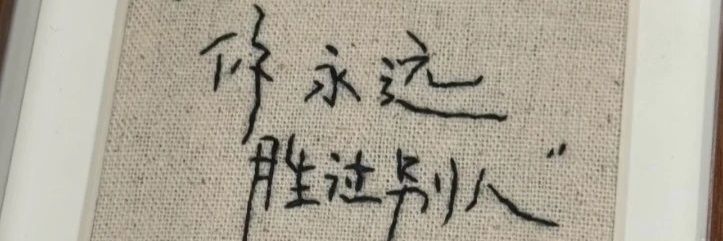 你永远
胜过别人”